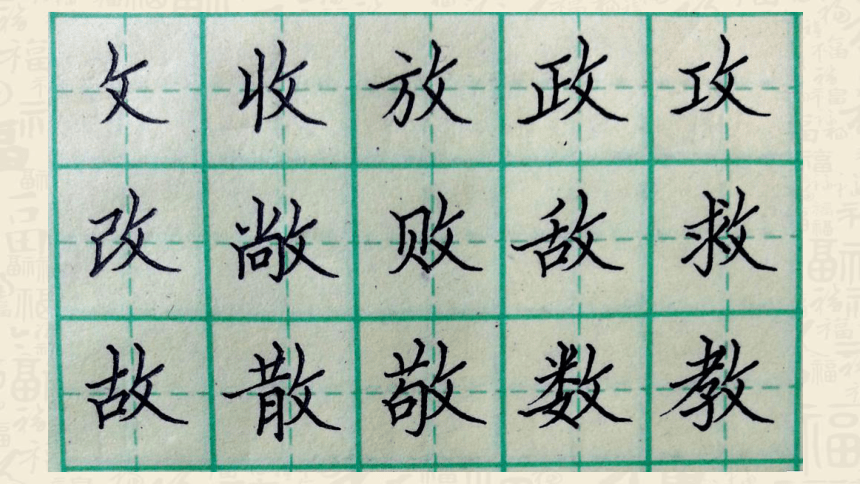 攵收放政攻
改敞败敌救
故散敬数教